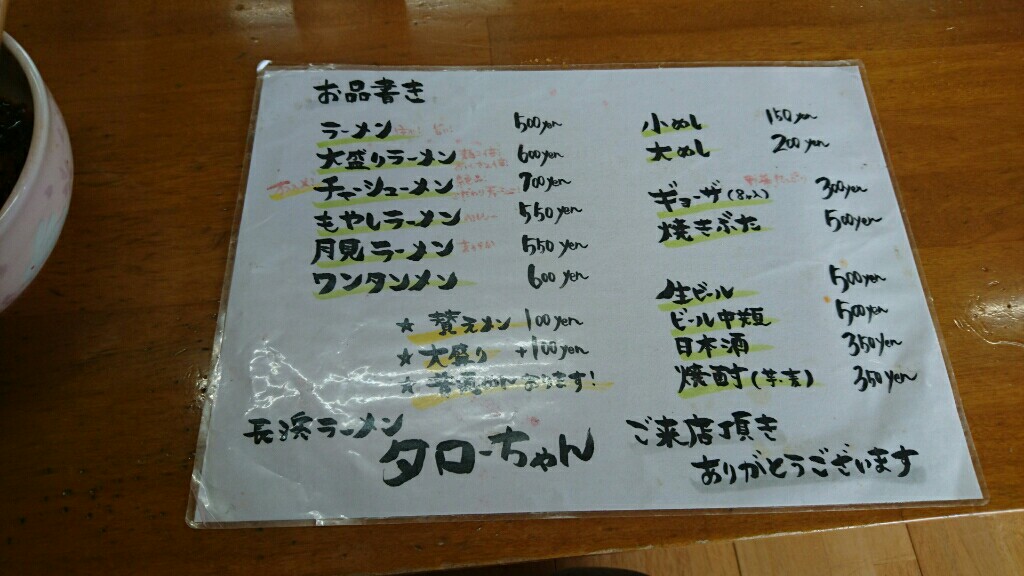 お品書き
ラーメン 500yen
大盛りラーメン 600yen
チャーシューメン 700yen
もやしラーメン 550yen
月見ラーメン 550yen
ワンタンメン 600yen
★ 替えメン 100yen
★ 大盛り +100yen
★ あります!
長浜ラーメン
タローちゃん
小めし 150yen
大めし 200yen
ギョーザ(8ヶ入) 300yen
焼きぶた 500yen
生ビール 500yen
ビール中類 500yen
日本酒 350yen
焼酎(芋・麦) 350yen
ご来店頂き
ありがとうございます